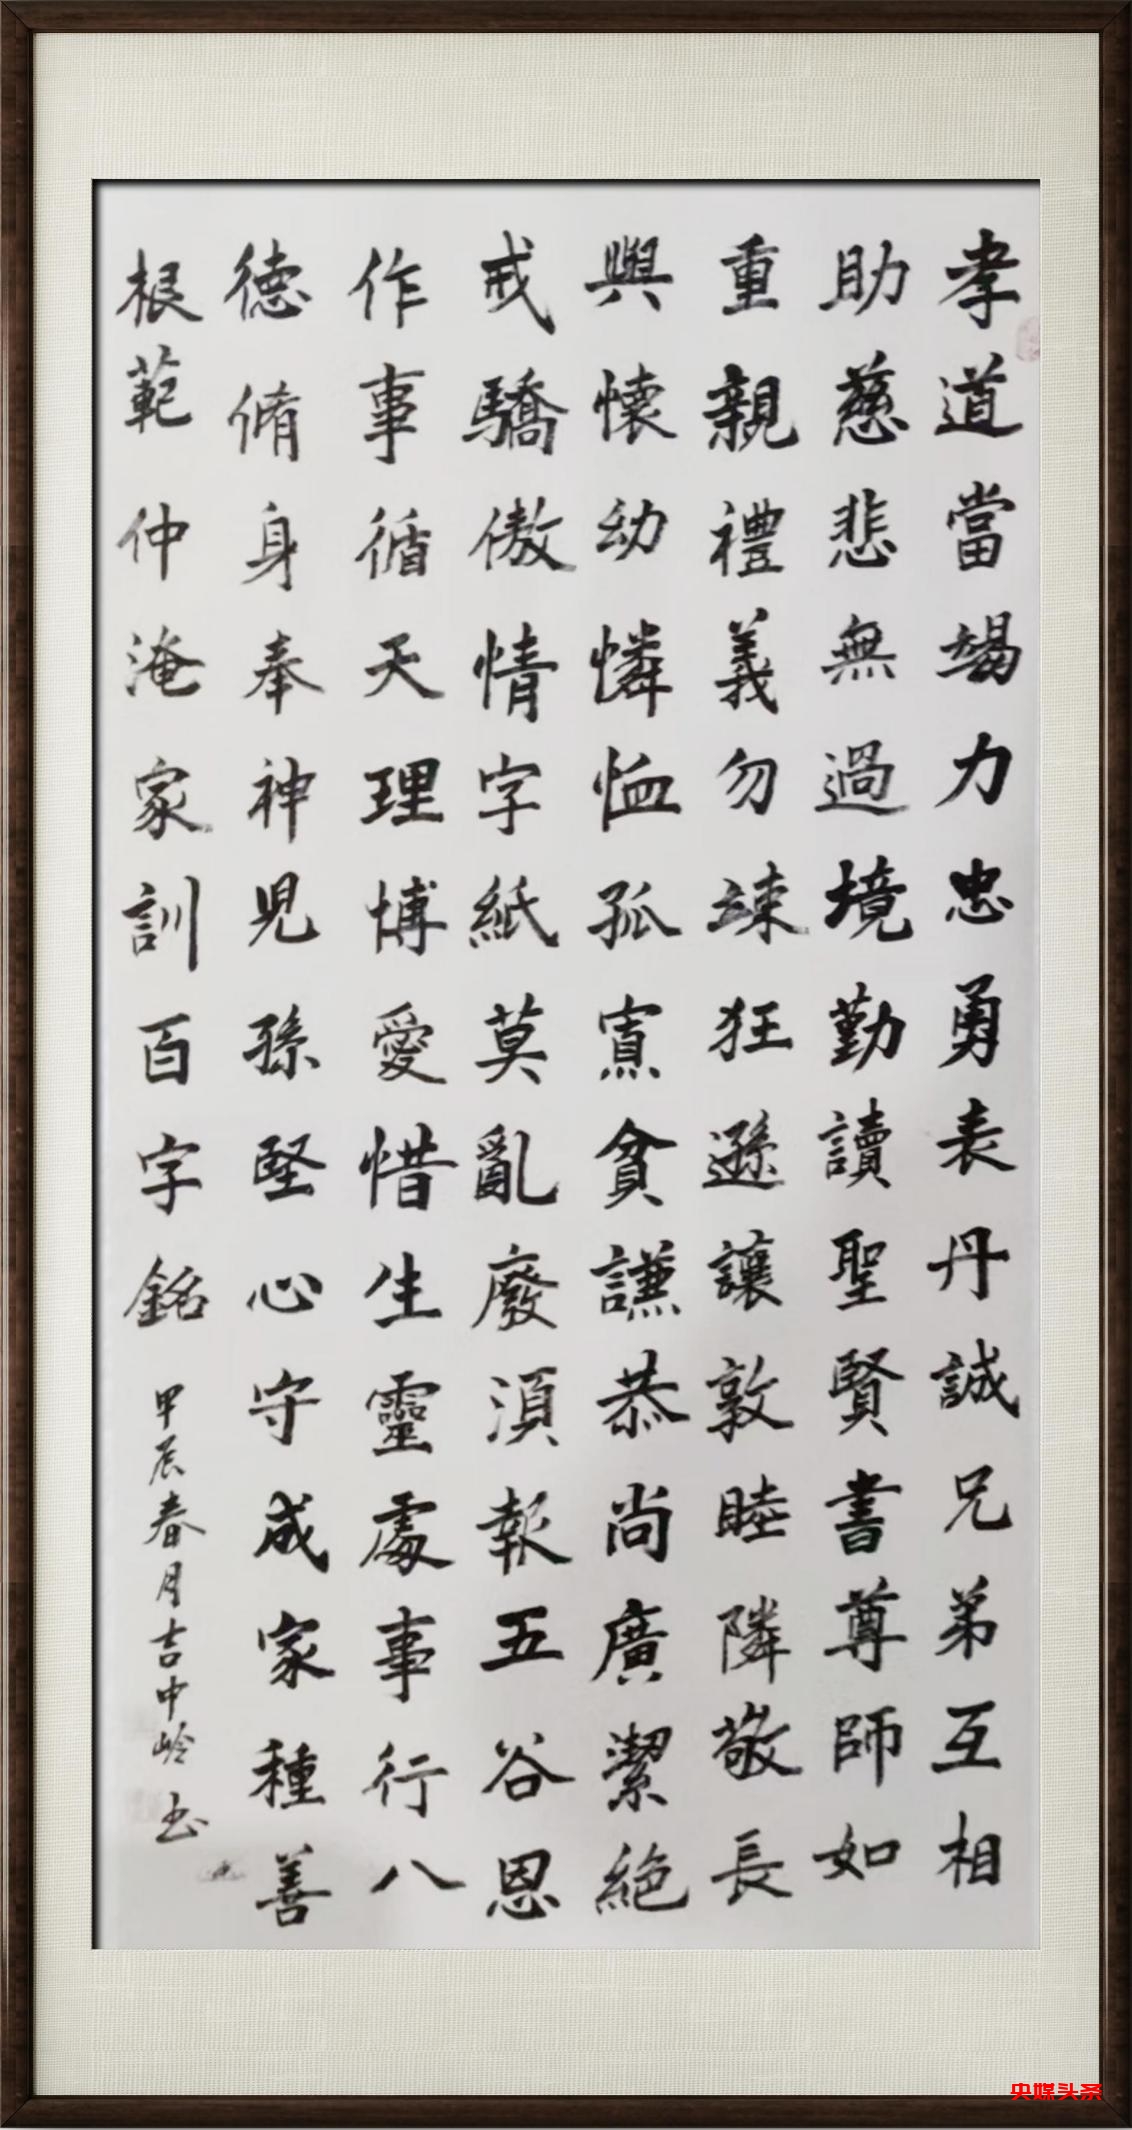 孝道當竭力忠勇表丹誠兄弟互相
助慈悲無過境勤讀聖賢書尊師如
重親禮義勿疎狂遜讓敦睦隣敬長
與懷幼憐恤孤寡貧謙恭尚廣潔絕
戒驕傲情字紙莫亂廢須報五谷恩
作事循天理博愛惜生靈處事行八
德脩身奉神児孫堅心守成家種善
根範仲淹家訓百字銘
甲辰春月吉中岭书
央媒头条